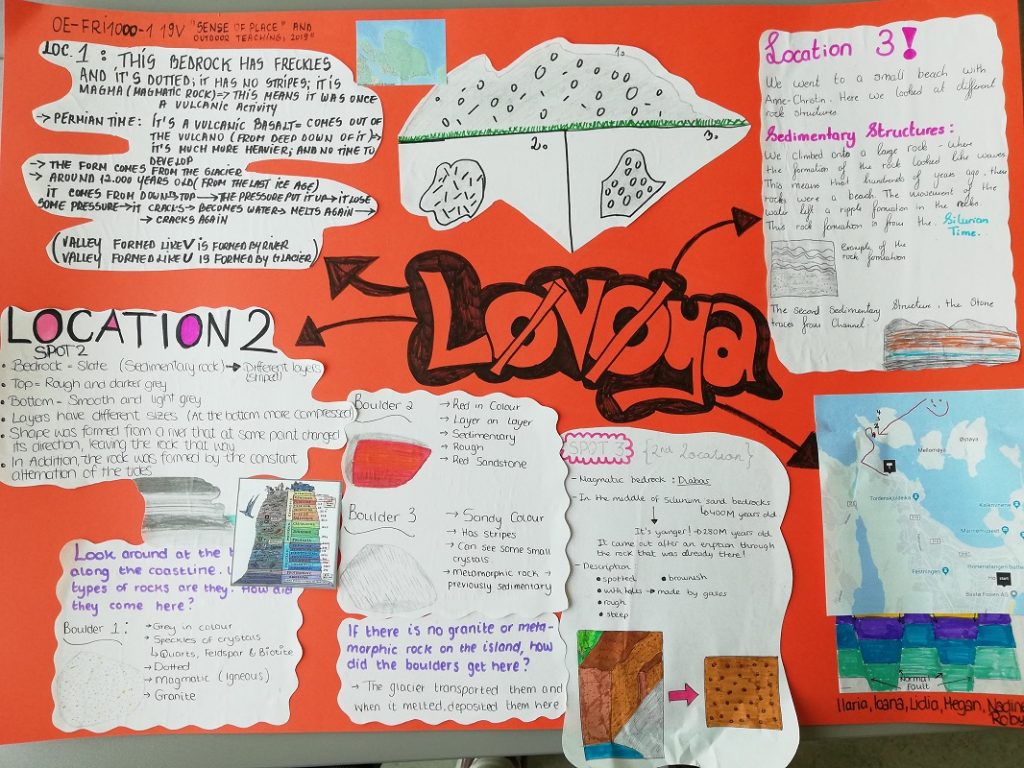 OE-FRI1000-1 19V "SENSE OF PLACE" AND
OUTDOOR TEACHING, 2019"
LOC. 1: THIS BEDROCK HAS FRECKLES
AND IT'S DOTTED; IT HAS NO STRIPES; IT IS
MAGHA (MAGMATIC ROCK) => THIS MEANS IT WAS ONCE
A VULCANIC ACTIVITY
→ PERMIAN TIME: IT'S A VULCANIC BASALT = COMES OUT OF
THE VULCANO (FROM DEEP DOWN OF IT)
IT'S MUCH MORE HEAVIER; AND NO TIME TO
DEVELOP
→ THE FORM COMES FROM THE GLACIER
→ AROUND 12.000 YEARS OLD (FROM THE LAST ICE AGE)
IT COMES FROM DOWN → TOP → THE PRESSURE PUT IT UP → IT LOSE
SOME PRESSURE → IT CRACKS → BECOMES WATER → MELTS AGAIN →
→ CRACKS AGAIN
(VALLEY FORMED LIKE V IS FORMED BY RIVER
VALLEY FORMED LIKE U IS FORMED BY GLACIER)
1.
2.
3.
Location 3!
We went to a small beach with
Anne-Christin. Here we looked at different
rock structures
Sedimentary Structures:
We climbed onto a large rock - where
the formation of the rock looked like waves.
This means that hundreds of years ago, these
rocks were a beach. The movement of the
water left a ripple formation in the rocks.
This rock formation is from the Silurian
Time..
Example of the
rock formation
The second Sedimentary Structure, the Stone
traces from Channel.
Løvøya
LOCATION 2
SPOT 2
• Bedrock = Slate (Sedimentary rock) → Different layers
(striped)
• Top = Rough and darker grey
• Bottom = Smooth and light grey
• Layers have different sizes (At the bottom more compressed)
• Shape was formed from a river that at some point changed
its direction, leaving the rock that way
• In Addition, the rock was formed by the constant
alternation of the tides
Look around at the
along the coastline.
types of rocks are they? How did
they come here?
Boulder 1:
→ Grey in colour
→ Speckles of crystals
↳ Quarts, Feldspar & Biotite
→ Dotted
→ Magmatic (Igneous)
→ Granite
Boulder 2
→ Red in Colour
→ Layer on layer
→ Sedimentary
→ Rough
→ Red Sandstone
Boulder 3
→ Sandy Colour
→ Has stripes
→ Can see some small
crystals
→ Metamorphic rock →
previously sedimentary
If there is no granite or meta-
morphic rock on the island, how
did the boulders get here?
→ The glacier transported them and
when it melted, deposited them here
SPOT 3 {2nd Location}
- Magmatic bedrock: Diabas
- In the middle of Silurium sand bedrocks
↳ 400M years old
It's yanger! → 280M years old
It came out after an eruption through
the rock that was already there!
- Description
• spotted • brownish
• with holes → made by gases
• rough
• steep
Østøya
Mellomøya
Tordenskjoldseika
Karljohansvern
Marinemuseet
Festningen
Start
Normal
fault
Ilaria, Ioana, Lidia, Megan, Nadine
Roby